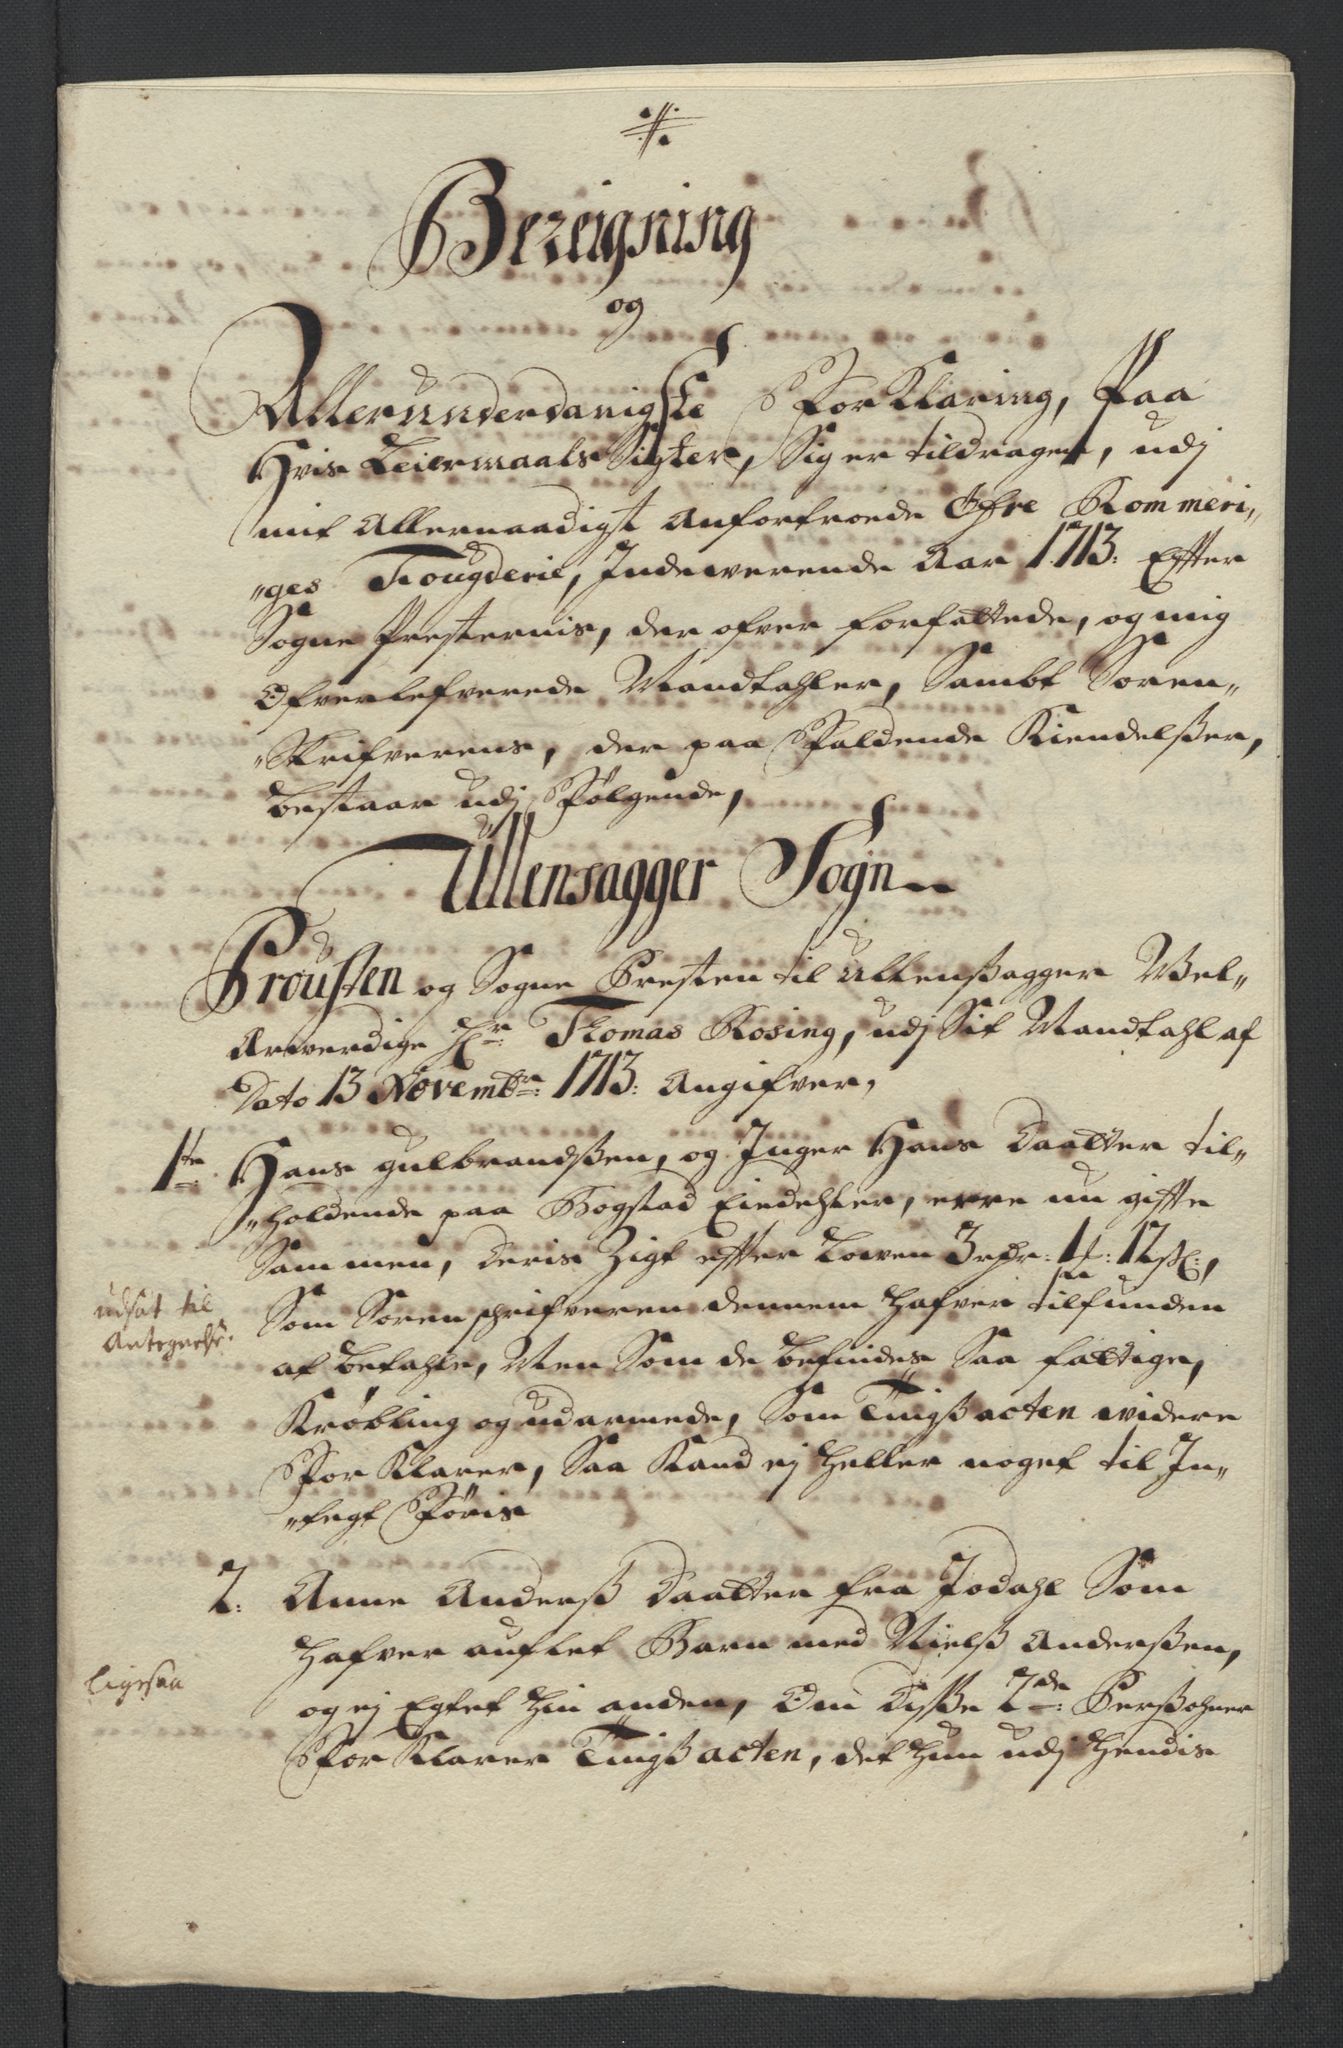 Bereigning
og
Allerunderdanigste ForKlaring, Paa
Hvis Leiermaals Sigter, Sig er tildragen, udj
mit Allernaadigst Anfortroede Øfre Rommeri„
„ges Fougderie, Indeværende Aar 1713: Effter
Sogne Presternis, der ofver forfattede, og mig
Ofverlefverede Mandtahler, Sambt Soren„
„Skrifverens, der paa Faldende Kiendelßer,
bestaar udj Følgende,
Ullensagger Sogn
Prousten og Sogne Presten til Ullenßagger Wel„
Ærwerdige Hr: Thomas Rosing, udj Sit Mandtahl af
Dato 13 Novembr: 1713: Angifver,
1te: Hans gulbrandßen, og Inger Hans Daatter til„
„holdende paa Bogstad Eiedehler, ere nu gifte
Sammen, Deris Sigt effter Lowen 3 rdr: 1 ƒ: 12 ß:,
Som Sorenschrifveren dennem hafver tilfunden
udsat til
Antegnelse.
at betahle, Men Som de befindes Saa fattige,
Krøbling og udarmede, Som Tingßacten widere
ForKlarer, Saa Kand ej heller noget til In„
„tegt Føris
2: Anne Anderß Daatter fra Jodahl Som
hafver auflet Barn med Nielß Anderßen,
ligesaa
og ej Egtet hin anden, Om Disse 2de: Perßohner
ForKlarer Tingßacten, det hun udj hendis